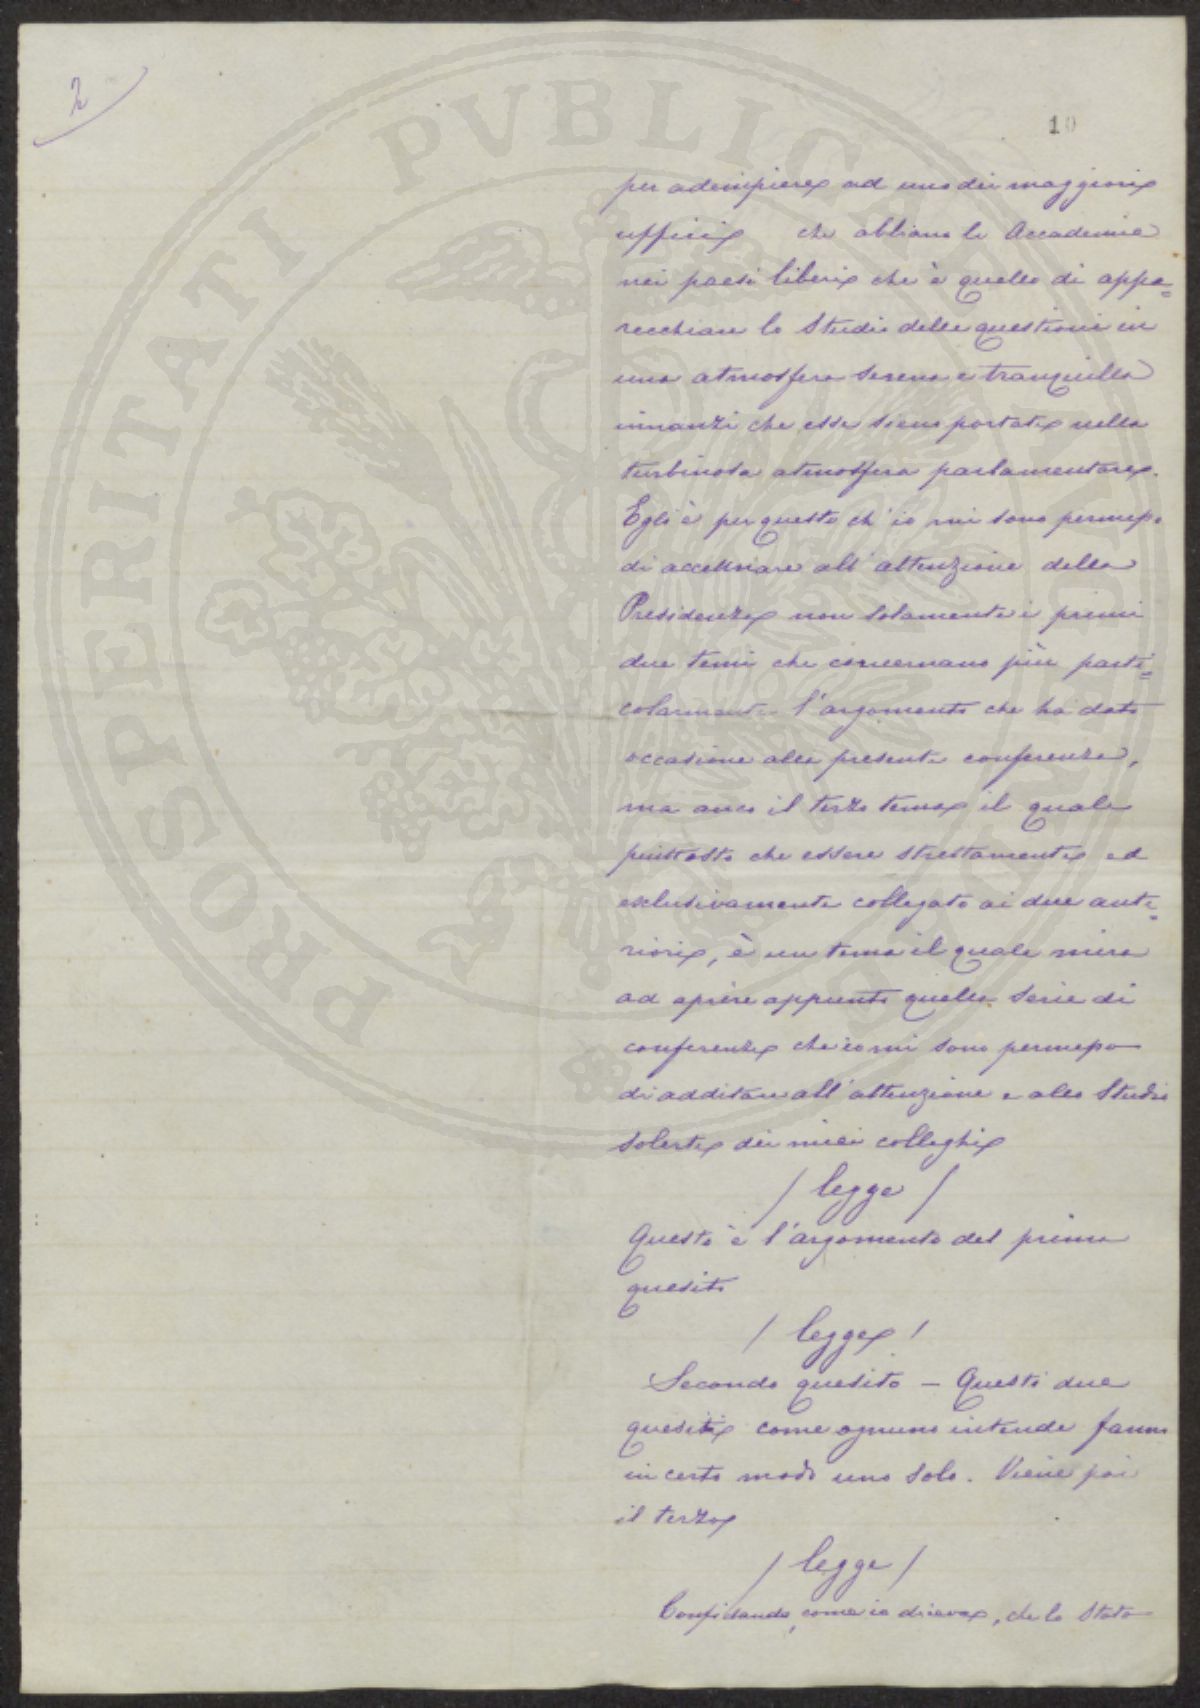 2
10
per adempiere ad uno dei maggiori
uffici che abbiano le Accademie
nei paesi liberi che è quello di appa=
recchiare lo studio delle questioni in
una atmosfera serena e tranquilla
innanzi che esse sieno portate nella
turbinosa atmosfera parlamentare.
Egli è per questo ch'io mi sono permesso
di accennare all'attenzione della
Presidenza non solamente i primi
due temi che concernano più parti=
colarmente l'argomento che ha dato
occasione alla presente conferenza,
ma anco il terzo tema il quale
piuttosto che essere strettamente ed
esclusivamente collegato ai due ante=
riori, è un tema il quale mira
ad aprire appunto quella serie di
conferenze che io mi sono permesso
di additare all'attenzione e allo studio
solerte dei miei colleghi
/ legge /
Questo è l'argomento del primo
quesito
/ legge /
Secondo quesito — Questi due
quesiti come ognuno intende fanno
in certo modo uno solo. Viene poi
il terzo
/ legge /
Confidando, come io diceva, che lo stato
PROSPERITATI PVBLICAE